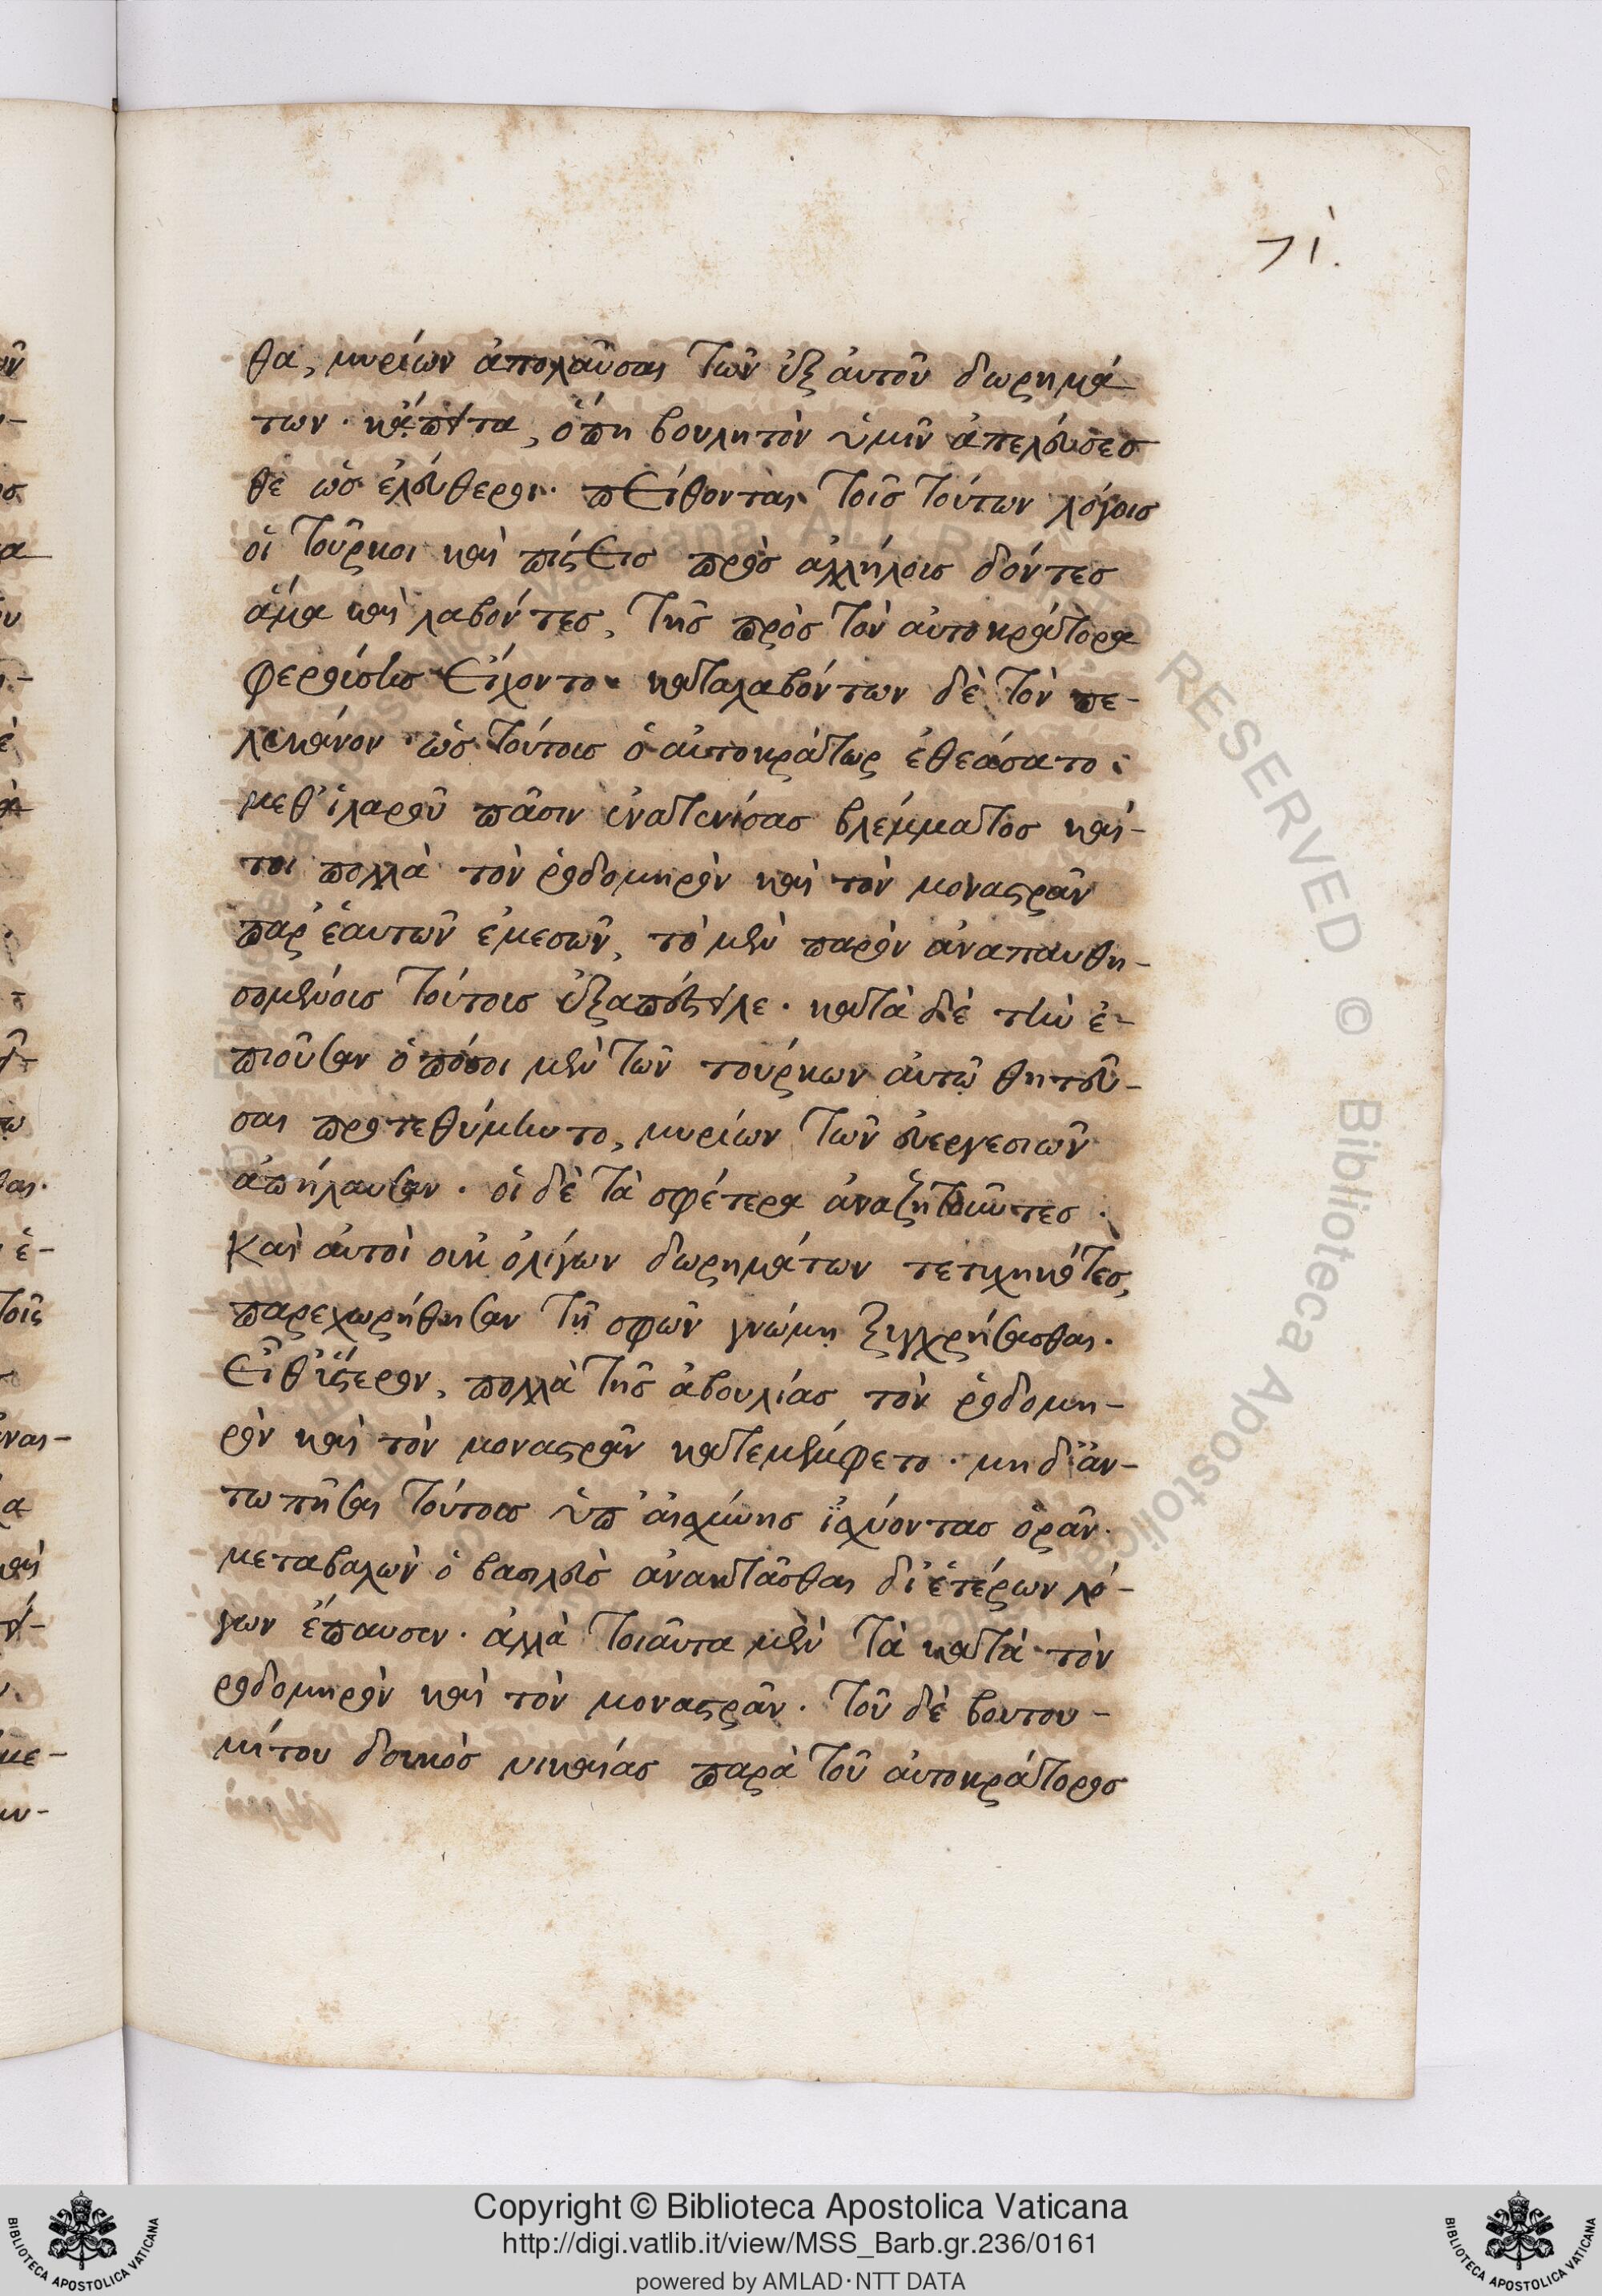 71.
θα, μυρίων ἀπολαῦσαι τῶν ἐξ αὐτοῦ δωρημά
των. κᾄπειτα, ὅπη βουλητὸν ὑμῖν ἀπελεύσεσ
θε ὡσ ἐλεύθεροι. πείθονται τοῖσ τούτων λόγοισ
οἱ τοῦρκοι καὶ πίστεισ πρὸσ ἀλλήλοισ δόντεσ
ἅμα καὶ λαβόντεσ, τῆσ πρὸσ τὸν αὐτοκράτορα
φερούσησ εἴχοντο. καταλαβόντων δὲ τὸν πε-
λεκάνον ὡσ τούτοισ ὁ αὐτοκράτωρ ἐθεάσατο.
μεθ' ἱλαροῦ πᾶσιν ἐνατενίσασ βλέμματοσ καί-
τοι πολλὰ τὸν ῥοδομηρὸν καὶ τὸν μοναστρᾶν
παρ' ἑαυτῶν ἐμεσῶν, τὸ μὲν παρὸν ἀναπαυθη-
σομένοισ τούτοισ ἐξαπέστειλε. κατὰ δὲ τὴν ἐ-
πιοῦσαν ὁπόσοι μὲν τῶν τούρκων αὐτῷ θητεῦ-
σαι προτεθύμηντο, μυρίων τῶν εὐεργεσιῶν
ἀπήλαυσαν. οἱ δὲ τὰ σφέτερα ἀναζητοῦντεσ.
καὶ αὐτοὶ οὐκ ὀλίγων δωρημάτων τετυχηκότεσ,
παρεχωρήθησαν τῇ σφῶν γνώμῃ ξυγχρήσασθαι.
εἶθ' ὕστερον, πολλὰ τῆσ ἀβουλίασ τὸν ῥοδομη-
ρὸν καὶ τὸν μοναστρᾶν κατεμέμφετο. μηδ' ἀν-
τωπῆσαι τούτοισ ὑπ' αἰσχύνησ ἰσχύοντασ ὁρᾶν.
μεταβαλὼν ὁ βασιλεὺσ ἀνακτᾶσθαι δι' ἑτέρων λό-
γων ἔπαυσεν. ἀλλὰ τοιαῦτα μὲν τὰ κατὰ τὸν
ροδομηρὸν καὶ τὸν μοναστρᾶν. τοῦ δὲ βουτου-
μίτου δουκὸσ νικαίασ παρὰ τοῦ αὐτοκράτοροσ
Copyright © Biblioteca Apostolica Vaticana
http://digi.vatlib.it/view/MSS_Barb.gr.236/0161
powered by AMLAD·NTT DATA
BIBLIOTECA APOSTOLICA VATICANA
BIBLIOTECA APOSTOLICA VATICANA